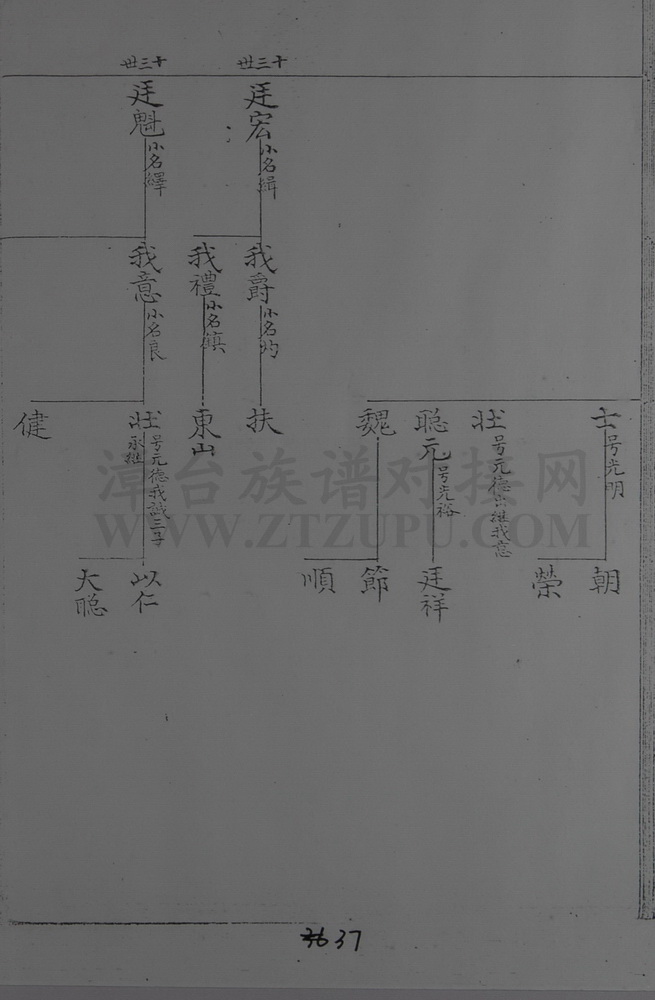 十三世
廷宏
小名緝
十三世
廷魁
小名繹
我爵
小名灼
我禮
小名鎮
我意
小名良
士
号光明
壯
号元德出继我意
聪元
号光裕
魏
扶
東山
壯
号元德我誠三子
承继
健
朝
榮
廷祥
節
順
以仁
大聪
漳台族谱对接网
WWW.ZTZUPU.COM
36 37